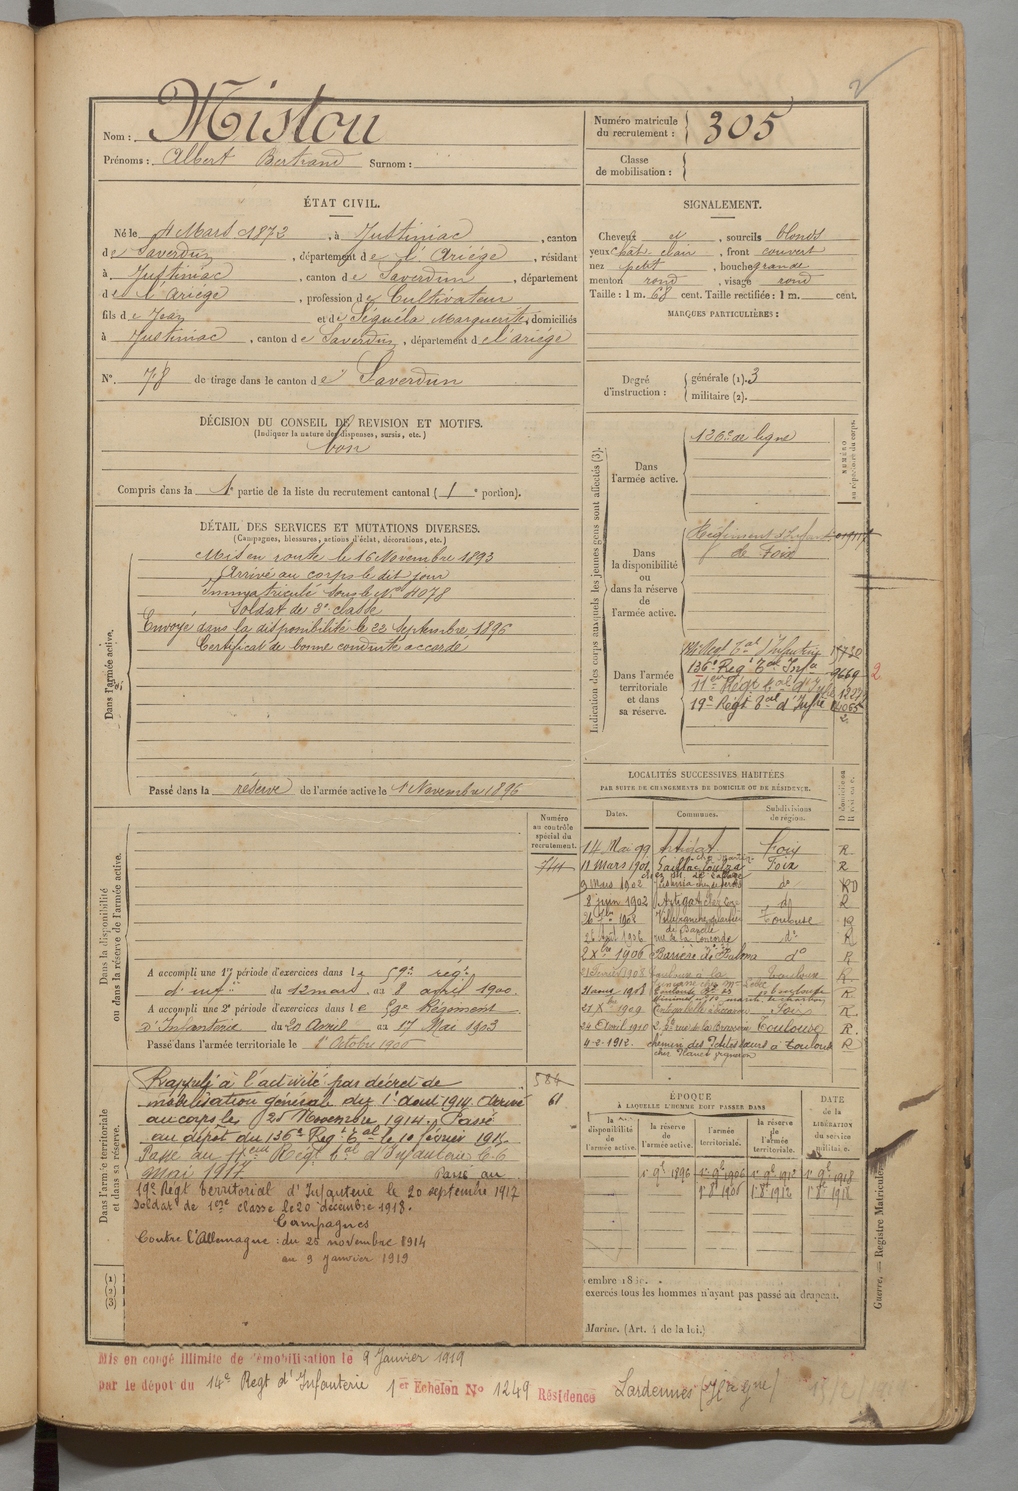 2
Nom : Mistou
Prénoms : Albert Bertrand Surnom :
Numéro matricule du recrutement : 305
Classe de mobilisation :
ÉTAT CIVIL.
Né le 4 Mars 1873, à Justiniac, canton
de Saverdun, département de l'Ariége, résidant
à Justiniac, canton de Saverdun, département
de l'Ariége, profession de Cultivateur
fils de Jean et de Séguéla Marguerite, domiciliés
à Justiniac, canton de Saverdun, département de l'ariége
N° 78 de tirage dans le canton de Saverdun
SIGNALEMENT.
Cheveux et, sourcils blonds
yeux chat. clair, front couvert
nez petit, bouche grande
menton rond, visage rond
Taille : 1 m. 68 cent. Taille rectifiée : 1 m. cent.
MARQUES PARTICULIÈRES :
Degré d'instruction : générale (1). 3
militaire (2).
DÉCISION DU CONSEIL DE REVISION ET MOTIFS.
(Indiquer la nature des dispenses, sursis, etc.)
bon
Compris dans la 1e partie de la liste du recrutement cantonal ( 1e portion).
DÉTAIL DES SERVICES ET MUTATIONS DIVERSES.
(Campagnes, blessures, actions d'éclat, décorations, etc.)
Dans l'armée active.
Mis en route le 16 Novembre 1893
Arrivé au corps le dit jour
Immatriculé sous le No 4078
Soldat de 2e classe
Envoyé dans la disponibilité le 22 Septembre 1896
Certificat de bonne conduite accordé
Passé dans la réserve de l'armée active le 1 Novembre 1896
Indication des corps auxquels les jeunes gens sont affectés (3).
NUMÉRO
Dans l'armée active.
126e de ligne
Dans la disponibilité ou dans la réserve de l'armée active.
Régiment d'Infanterie
de Foix
Dans l'armée territoriale et dans sa réserve.
136e Reg. Tal Infie 9669
11eme Régt tal d'Infie
19e Régt Tal d'Infie
2
Dans la disponibilité ou dans la réserve de l'armée active.
Numéro au contrôle spécial du recrutement.
A accompli une 1re période d'exercices dans le 59e rég.t
d'infie du 12 mars au 8 avril 1900.
A accompli une 2e période d'exercices dans le 59e Régiment
d'Infanterie du 20 Avril au 17 Mai 1903
Passé dans l'armée territoriale le 1er Octobre 1906
LOCALITÉS SUCCESSIVES HABITÉES
PAR SUITE DE CHANGEMENTS DE DOMICILE OU DE RÉSIDENCE.
Dates. Communes. Subdivisions de région.
14 Mai 99 Artigat Foix R
11 Mars 1901 Foix R
9 Mars 1902 do
8 juin 1902 Artigat do R
Toulouse R
26 Août 1906 rue de la Concorde do R
2 Xbre 1906 Barrière de do R
Toulouse R
R
21 Xbre 1909 Foix R
24 Avril 1910 Toulouse R.
4-2-1912. Chemin des à Toulouse R
Dans l'armée territoriale et dans sa réserve.
584
61
Rappelé à l'activité par décret de
mobilisation générale du 1er Aout 1914. Arrivé
au corps le 25 Novembre 1914. Passé
au dépôt du 136e Reg. Tal le 10 février 1915.
Passé au 11eme Regt tal d'Infanterie le 6
mai 1917. Passé au
19e Régt territorial d'Infanterie le 20 septembre 1917
Soldat de 1ere classe le 20 décembre 1918.
Campagnes
Contre l'Allemagne : du 25 novembre 1914
au 9 Janvier 1919
(1)
(2)
(3)
ÉPOQUE
À LAQUELLE L'HOMME DOIT PASSER DANS
la disponibilité de l'armée active. la réserve de l'armée active. l'armée territoriale. la réserve de l'armée territoriale.
DATE de la LIBÉRATION du service militaire.
1er 9bre 1896 1er 9bre 1906 1er 9bre 1912 1er 9bre 1918
1er 8bre 1906 1er 8bre 1912 1er 8bre 1918
exercés tous les hommes n'ayant pas passé au drapeau.
Marine. (Art. 4 de la loi.)
Guerre. — Registre Matricule.
Mis en congé illimité de démobilisation le 9 Janvier 1919
par le dépot du 14e Regt d'Infanterie 1er Echelon No 1249 Résidence Lardennes